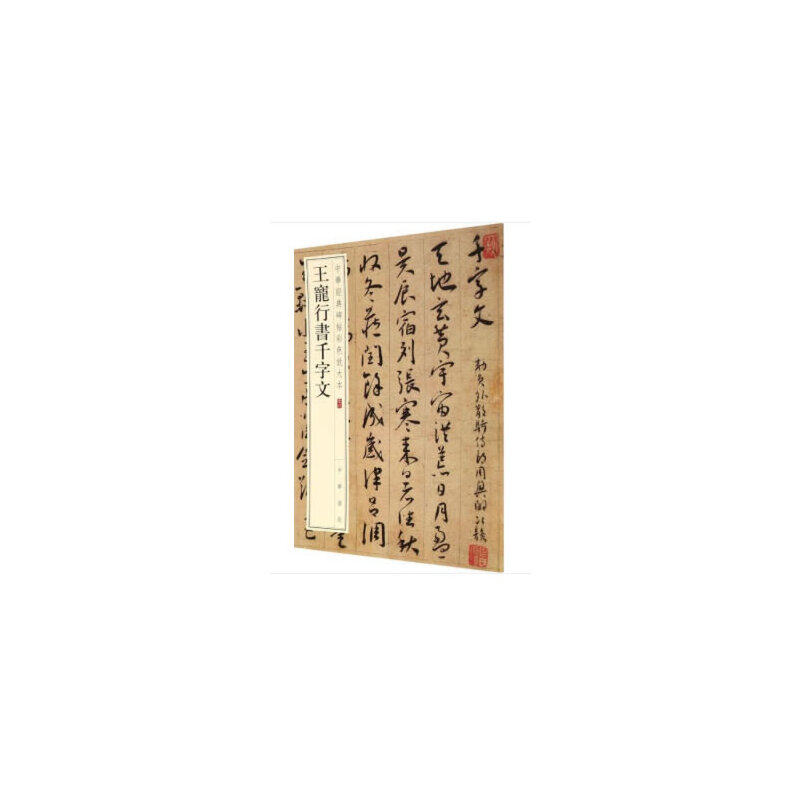 千字文
勅員外散騎侍郎周興嗣次韻
天地玄黃宇宙洪荒日月盈
昃辰宿列張寒来暑往秋
收冬藏閏餘成歲律呂調
中華經典碑帖彩色放大本
王寵行書千字文
中華書局